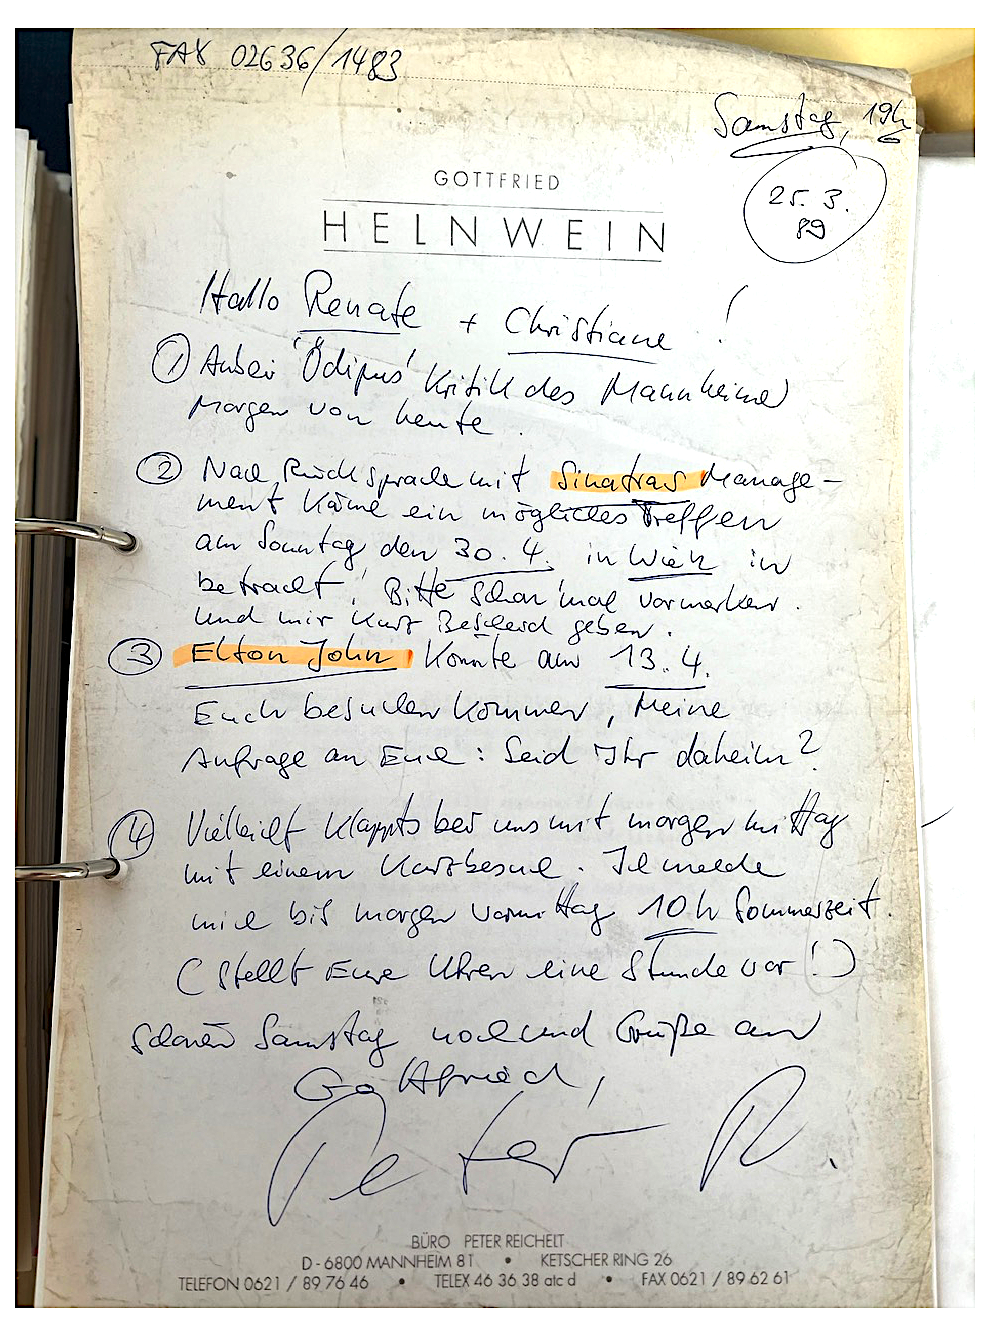 FAX 02636/1483
Samstag, 19h
25. 3.
89
GOTTFRIED
HELNWEIN
Hallo Renate + Christiane !
① Anbei 'Ödipus' Kritik des Mannheimer
Morgen von heute.
② Nach Rücksprache mit Sinatras Manage-
ment käme ein mögliches Treffen
am Sonntag den 30. 4. in Wien in
betracht! Bitte schon 'mal vormerken.
Und mir kurz Bescheid geben.
③ Elton John könnte am 13. 4.
Euch besuchen kommen, Meine
Anfrage an Euch: Seid Ihr daheim?
④ Vielleicht klappts bei uns mit morgen mittag
mit einem Kurzbesuch. Ich melde
mich bis morgen vormittag 10h Sommerzeit.
(Stellt Eure Uhren eine Stunde vor!)
Schönen Samstag noch und Grüße an
Gottfried,
Peter R.
BÜRO PETER REICHELT
D - 6800 MANNHEIM 81 • KETSCHER RING 26
TELEFON 0621 / 89 76 46 • TELEX 46 36 38 atc d • FAX 0621 / 89 62 61